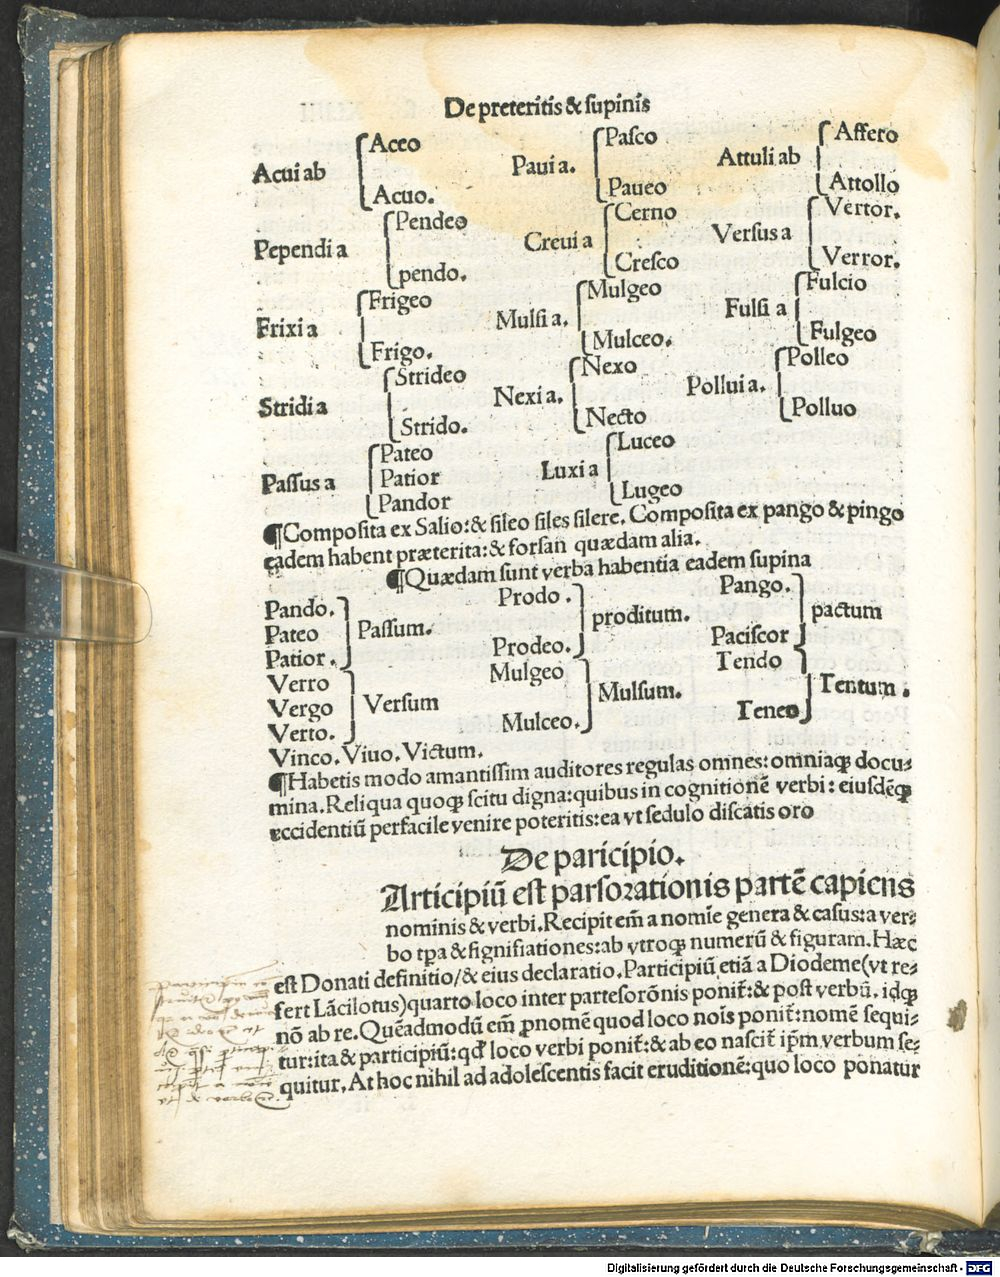 De preteritis & supinis
Acui ab Aceo Acuo.
Paui a. Pasco Paueo
Attuli ab Affero Attollo
Pependi a Pendeo pendo.
Creui a Cerno Cresco
Versus a Vertor. Verror.
Frixi a Frigeo Frigo.
Mulsi a. Mulgeo Mulceo.
Fulsi a Fulcio Fulgeo
Stridi a Strideo Strido.
Nexi a. Nexo Necto
Pollui a. Polleo Polluo
Passus a Pateo Patior Pandor
Luxi a Luceo Lugeo
¶Composita ex Salio: & sileo siles silere. Composita ex pango & pingo
eadem habent præterita: & forsan quædam alia.
¶Quædam sunt verba habentia eadem supina
Pando. Pateo Patior. Passum.
Prodo. Prodeo. proditum.
Pango. Paciscor pactum
Verro Vergo Verto. Versum
Mulgeo Mulceo. Mulsum.
Tendo Teneo Tentum.
Vinco. Viuo. Victum.
¶Habetis modo amantissim auditores regulas omnes: omniaqꝫ docu-
mina. Reliqua quoqꝫ scitu digna: quibus in cognitionē verbi: eiusdēqꝫ
accidentiū perfacile venire poteritis: ea vt sedulo discatis oro
De paricipio.
Articipiū est parsorationis partē capiens
nominis & verbi. Recipit em̄ a nomīe genera & casus: a ver-
bo tp̄a & significationes: ab vtroqꝫ numerū & figuram. Hæc
est Donati definitio/ & eius declaratio. Participiū etiā a Diodeme (vt re-
fert Lācilotus) quarto loco inter partesorōnis ponit̄: & post verbū. idqꝫ
nō ab re. Quēadmodū em̄ ꝓnomē quod loco nois ponit̄: nomē sequi-
tur: ita & participiū: qd̓ loco verbi ponit̄: & ab eo nascit̄ ip̄m verbum se-
quitur. At hoc nihil ad adolescentis facit eruditionē: quo loco ponatur
Digitalisierung gefördert durch die Deutsche Forschungsgemeinschaft - DFG